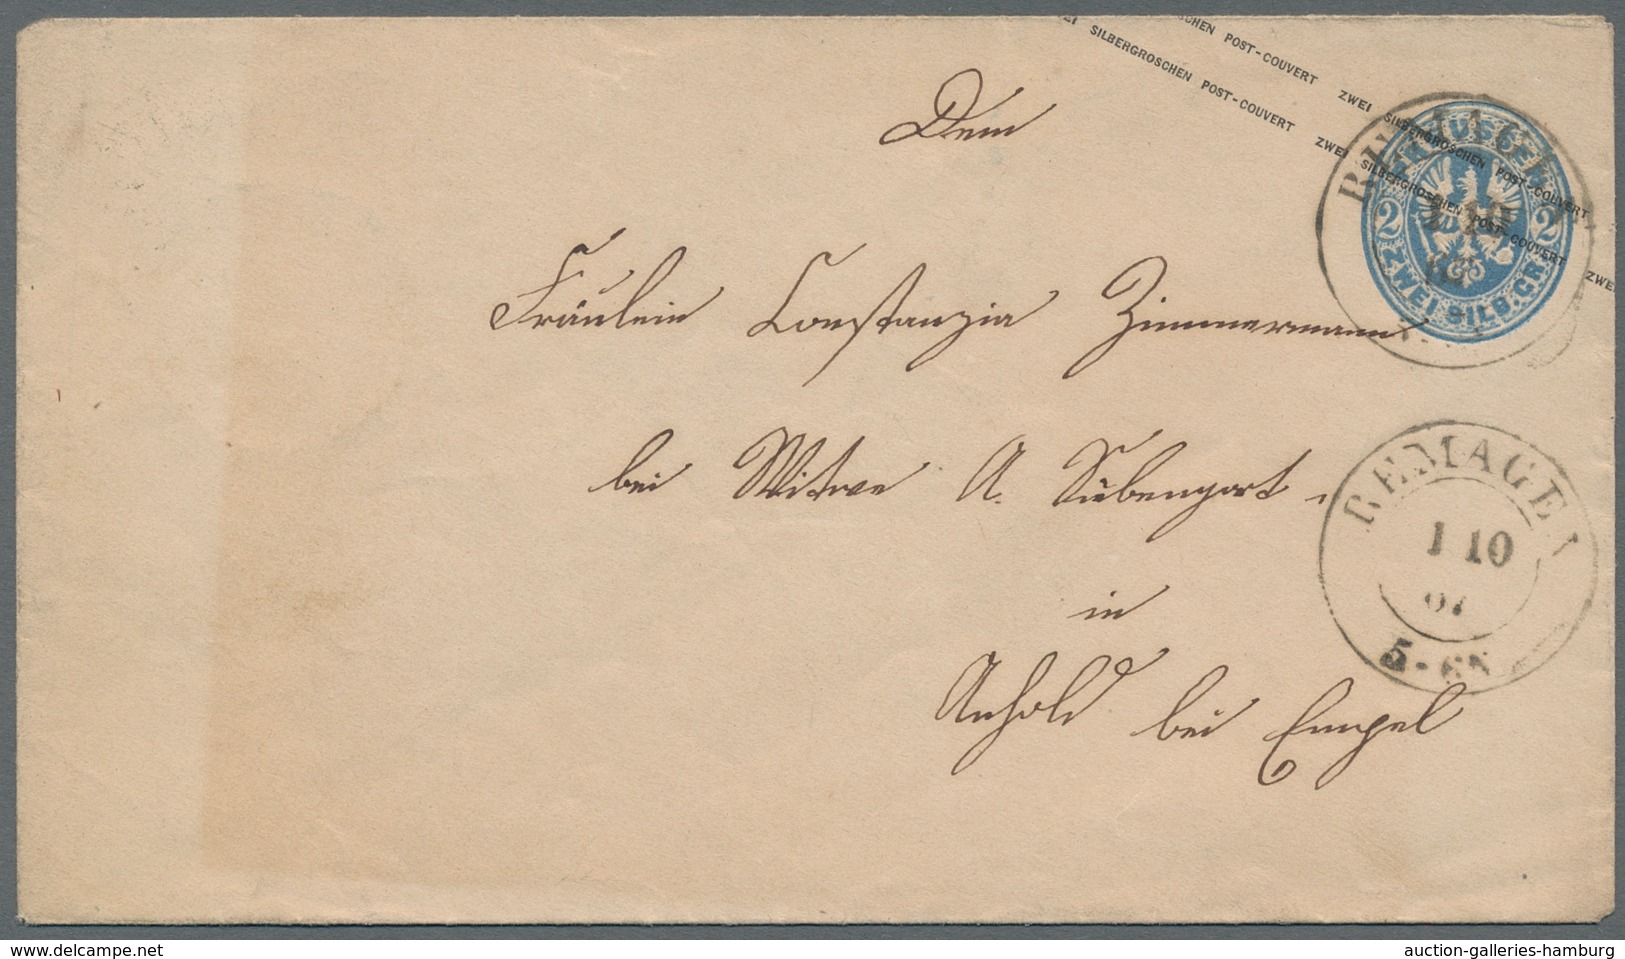 SILBERGROSCHEN POST-COUVERT ZWEI SILBERGROSCHEN POST-COUVERT
ZWEI SILBERGROSCHEN POST-COUVERT ZWEI SILBERGROSCHEN POST-COUVERT ZWEI
PREUSSEN
2 2
ZWEI SILB.GR.
Dem
Fräulein Constanzia Zimmermann
bei Witwe A. Siebengart,
in
Anhold bei Empel
REMAGEN
1 10
67
5-6N
auction-galleries-hamburg